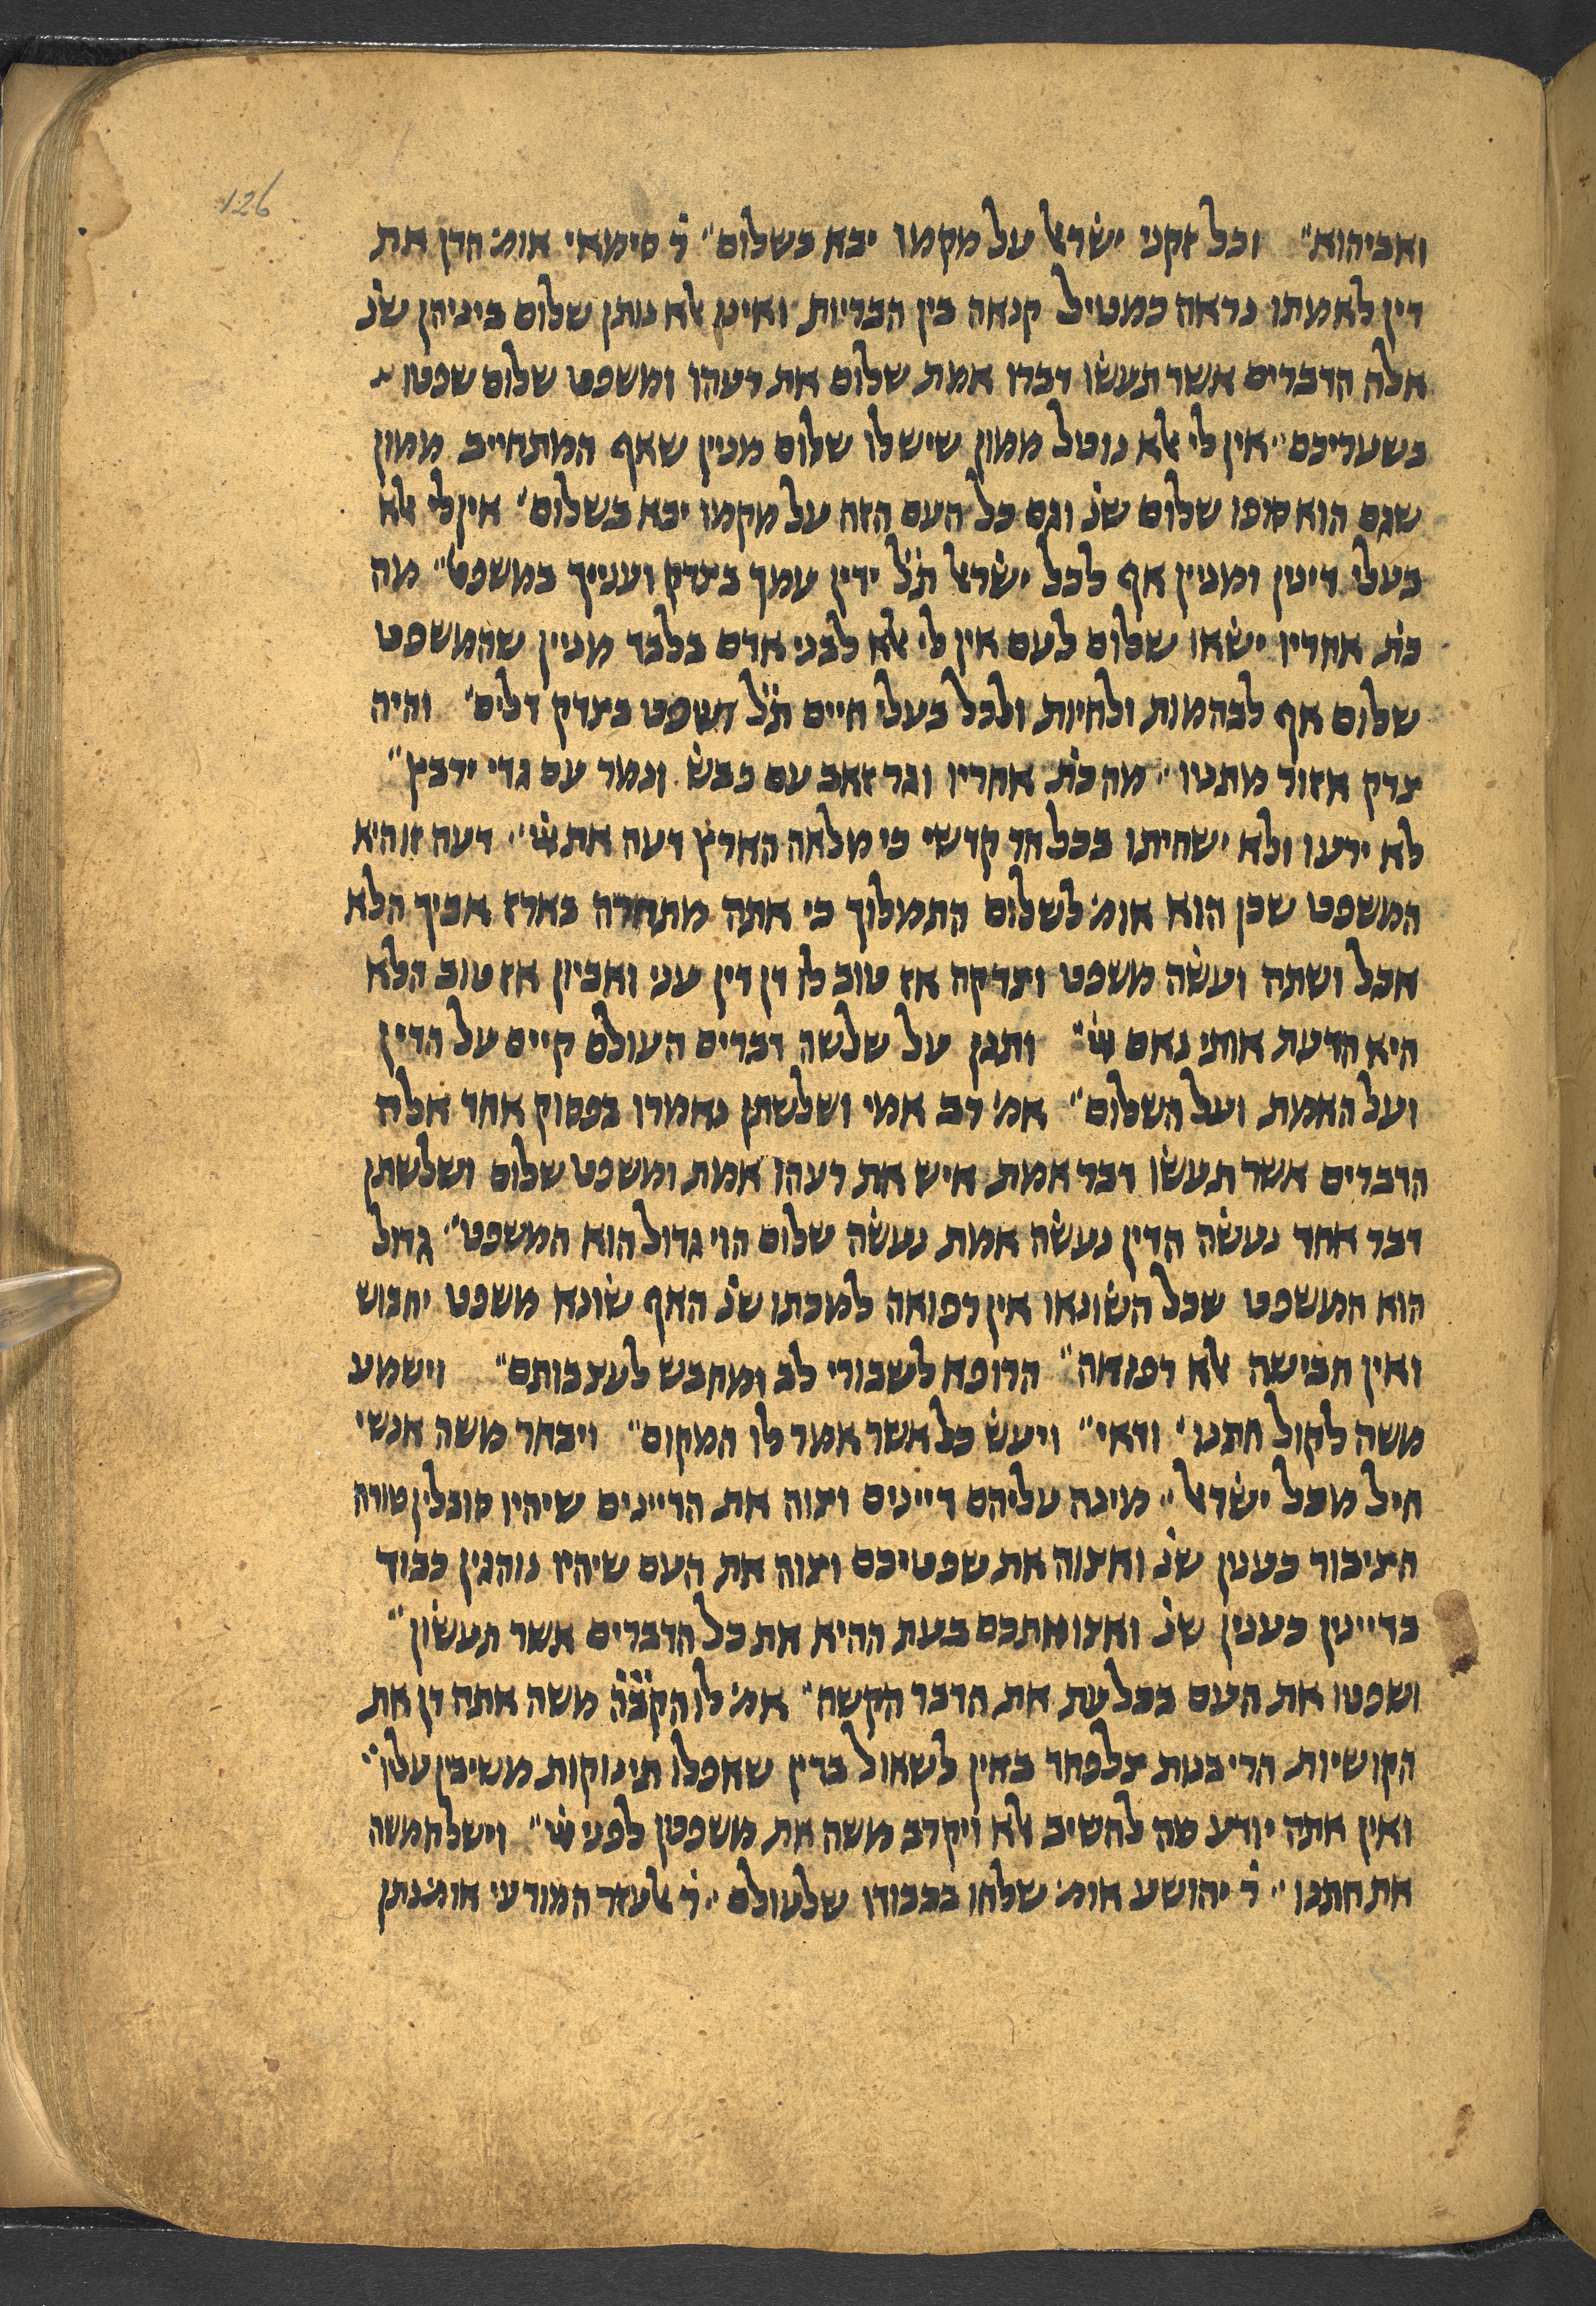 126
ואביהוא״ וכל זקני ישׂרא׳ל על מקמו יבא בשלום״ ר׳ סימאי אומ׳ הדן את
דין לאמתו נראה כמטיל קנאה בין הבריות ואינו אלא נותן שלום ביניהן שנ׳
אלה הדברים אשר תעשׂו דברו אמת שלום את רעהו ומשפט שלום שפטו
בשעריכם״ אין לי אלא נוטל ממון שיש לו שלום מנין שאף המתחייב ממון
שגם הוא סופו שלום שנ׳ וגם כל העם הזה על מקמו יבא בשלום׳ אין לי אלא
בעלי דינין ומנין אף לכל ישׂראל ת״ל ידין עמך בצדק וענייך במשפט״ מה
כת׳ אחריו ישׂאו שלום לעם אין לי אלא לבני אדם בלבד מניין שהמשפט
שלום אף לבהמות ולחיות ולכל בעלי חיים ת״ל ושפט בצדק דלים׳ והיה
צדק אזור מתניו״ מה כת׳ אחריו וגר זאב עם כבשׂ ונמר עם גדי ירבץ״
לא ירעו ולא ישחיתו בכל הר קדשי כי מלאה הארץ דעה את ״ דעה זו היא
המשפט שכן הוא אומ׳ לשלום התמלוך כי אתה מתחרה בארז אביך הלא
אכל ושתה ועשׂה משפט וצדקה אז טוב לו דן דין עני ואביון אז טוב הלא
היא הדעת אותי נאם ״ ותנן על שלשה דברים העולם קיים על הדין
ועל האמת ועל השלום״ אמ׳ רב אמי ושלשתן נאמרו בפסוק אחד אלה
הדברים אשר תעשׂו דבר אמת איש את רעהו אמת ומשפט שלום ושלשתן
דבר אחד נעשׂה הדין נעשׂה אמת נעשׂה שלום הוי גדול הוא המשפט״ גדול
הוא המשפט שכל השׂונאו אין רפואה למכתו שנ׳ האף שׂונא משפט יחבוש
ואין חבישה אלא רפואה״ הרופא לשבורי לב ומחבש לעצבותם״ וישמע
משה לקול חתנו׳ ודאי״ ויעשׂ כל אשר אמר לו המקום״ ויבחר משה אנשי
חיל מכל ישׂראל״ מינה עליהם דיינים וצוה את הדיינים שיהיו סובלין טורח
הציבור כענין שנ׳ ואצוה את שפטיכם וצוה את העם שיהיו נוהגין כבוד
בדיינין כענין שנ׳ ואצו אתכם בעת ההיא את כל הדברים אשר תעשׂון״
ושפטו את העם בכל עת את הדבר הקשה״ אמ׳ לו הקב״ה משה אתה דן את
הקושיות הרי בנות צלפחד באין לשאול בדין שאפלו תינוקות משיבין עליו״
ואין אתה יודע מה להשיב אלא ויקרב משה את משפטן לפני ״ וישלח משה
את חתנו״ ר׳ יהושע אומ׳ שלחו בכבודו שלעולם״ ר׳ אלעזר המודעי אומ׳ נתן